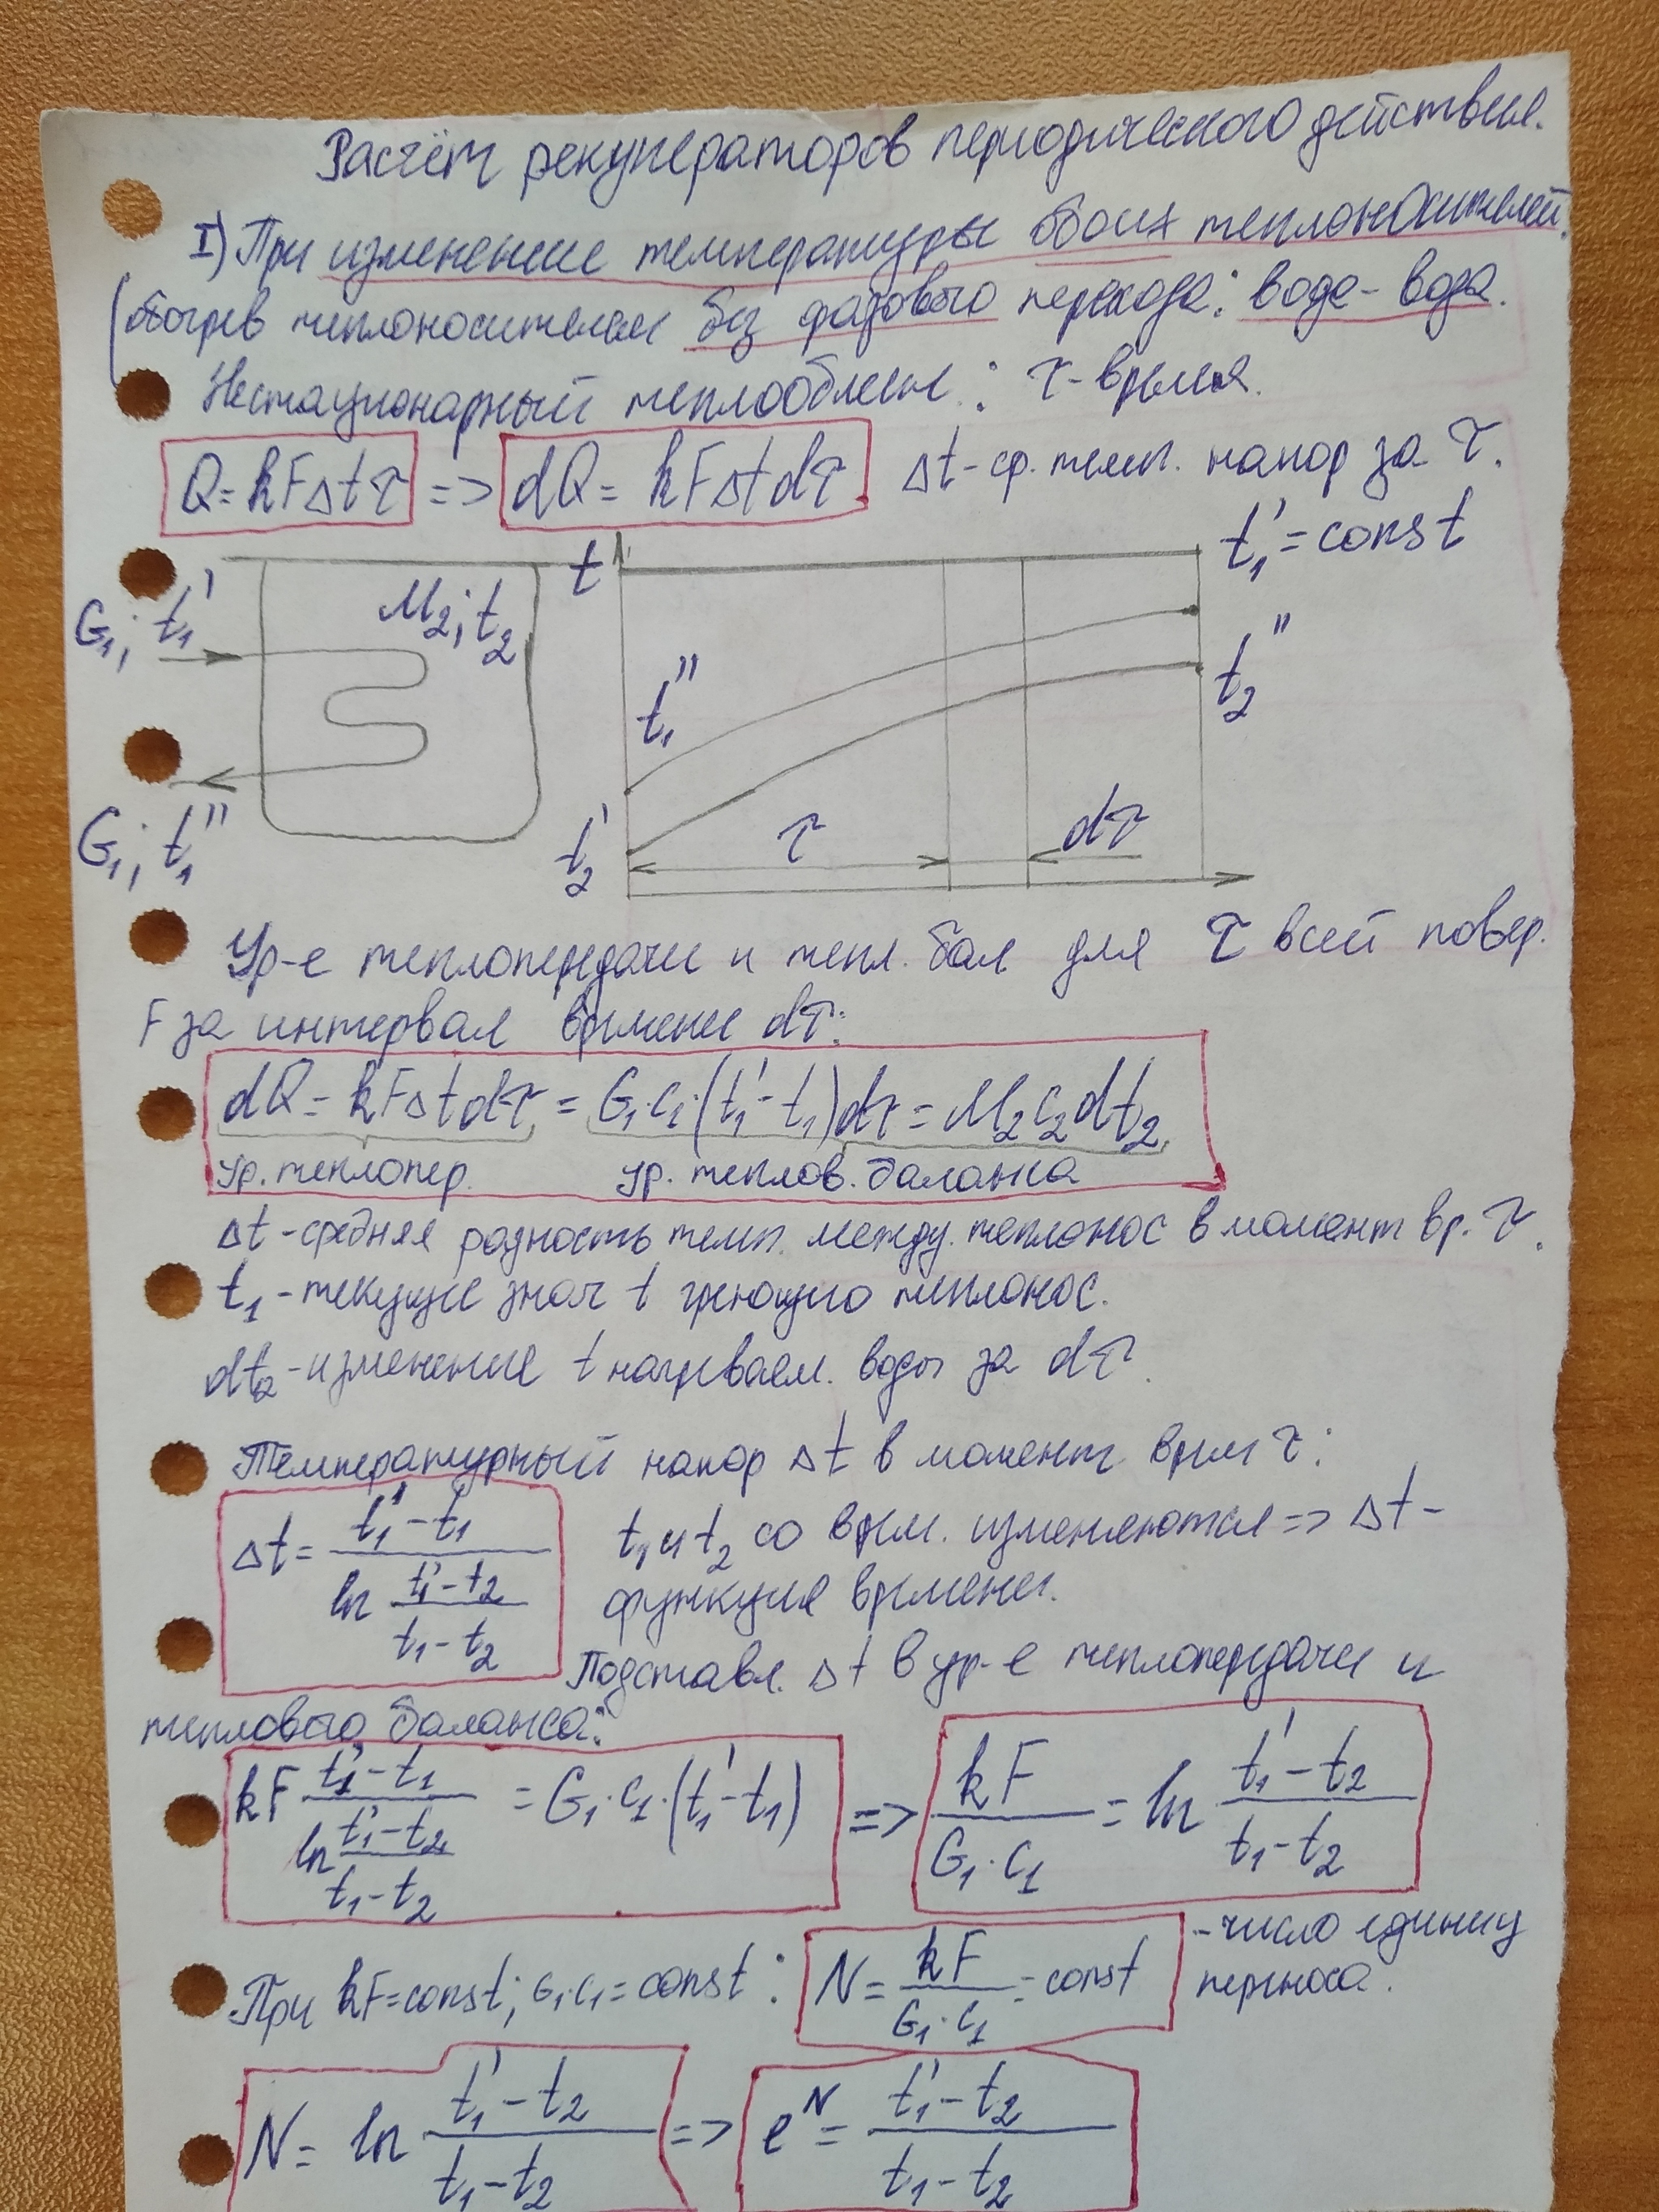 Расчёт рекуператоров периодического действия.
I) При изменение температуры обоих теплоносителей.
(догрев теплоносителем без фазового перехода: вода - вода.
Нестационарный теплообмен: τ - время.
Q = kFΔtτ => dQ = kFΔtdτ Δt - ср. темп. напор за τ.
t₁' = const
t
G₁; t₁'
M₂; t₂
t₁''
t₂''
G₁; t₁''
t₂'
τ
dτ
Ур-е теплопередачи и тепл. бал для τ всей повер.
F за интервал времени dτ:
dQ = kFΔtdτ = G₁·c₁·(t₁' - t₁)dτ = M₂c₂dt₂
ур. теплопер. ур. теплов. баланса
Δt - средняя разность темп. между теплонос в момент вр. τ.
t₁ - текущие знач t греющего теплонос.
dt₂ - изменение t нагреваем. воды за dτ.
Температурный напор Δt в момент врем τ:
Δt = (t₁' - t₁) / (ln (t₁' - t₂)/(t₁ - t₂)) t₁ и t₂ со врем. изменяются => Δt -
функция времени.
Подставл. Δt в ур-е теплопередачи и
теплового баланса:
kF (t₁' - t₁) / (ln (t₁' - t₂)/(t₁ - t₂)) = G₁·c₁·(t₁' - t₁) => kF/(G₁·c₁) = ln (t₁' - t₂)/(t₁ - t₂)
При kF = const; G₁·c₁ = const: N = kF/(G₁·c₁) = const - число единиц
переноса.
N = ln (t₁' - t₂)/(t₁ - t₂) => eᴺ = (t₁' - t₂)/(t₁ - t₂)